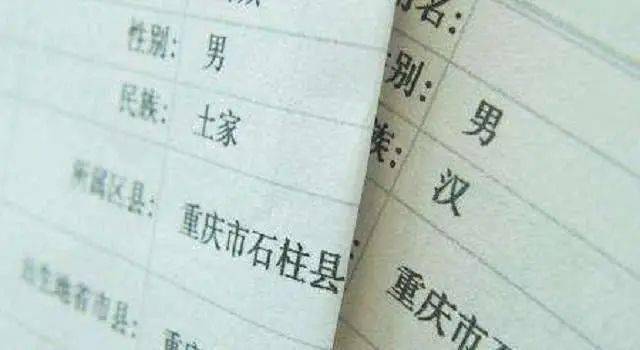 性别: 男
民族: 土家
所属区县: 重庆市石柱县
生地省市县: 重庆
名:
别: 男
族: 汉
重庆市石